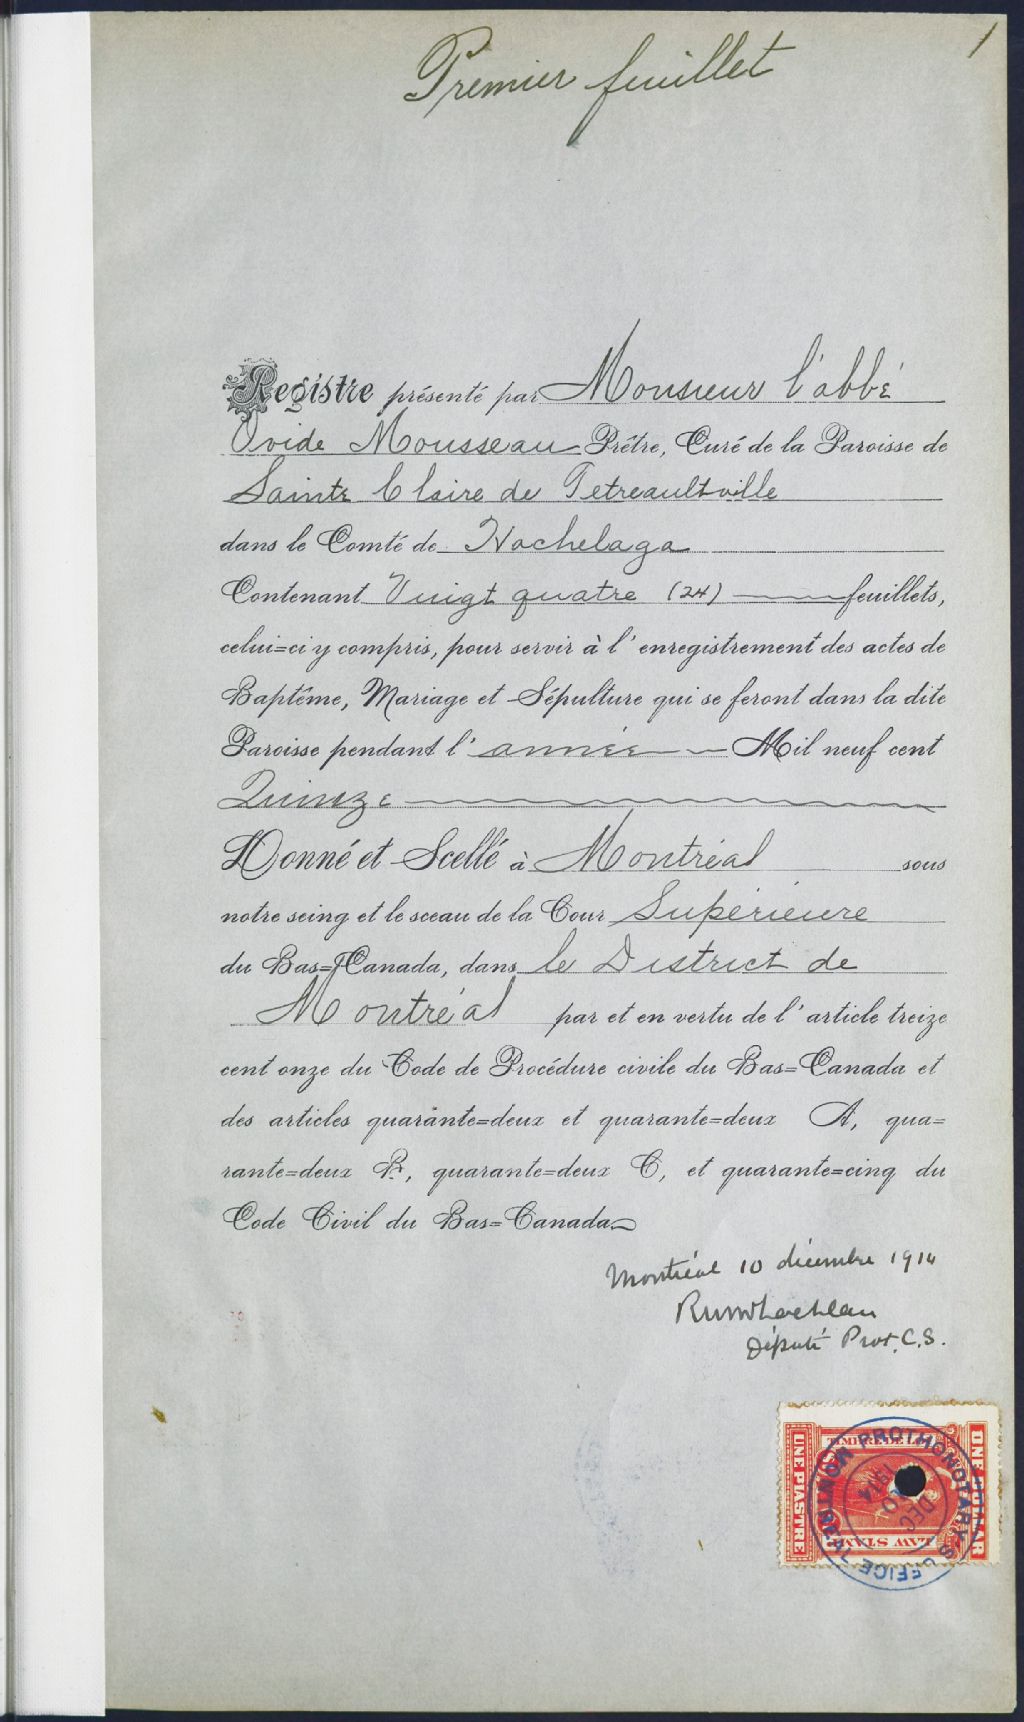 1
Premier feuillet
Registre présenté par Monsieur l'abbé
Ovide Mousseau Prêtre, Curé de la Paroisse de
Sainte Claire de Tetreaultville
dans le Comté de Hochelaga
Contenant Vingt quatre (24) feuillets,
celui=ci y compris, pour servir à l'enregistrement des actes de
Baptême, Mariage et Sépulture qui se feront dans la dite
Paroisse pendant l'année Mil neuf cent
Quinze
Donné et Scellé à Montréal sous
notre seing et le sceau de la Cour Supérieure
du Bas=Canada, dans le District de
Montréal par et en vertu de l'article treize
cent onze du Code de Procédure civile du Bas=Canada et
des articles quarante=deux et quarante=deux A, qua=
rante=deux B, quarante=deux C, et quarante=cinq du
Code Civil du Bas=Canada
Montréal 10 décembre 1914
Député Prot. C.S.
UNE PIASTRE
ONE DOLLAR
LAW STAMP
PROTHONOTARY'S OFFICE MONTREAL
DEC 10 1914